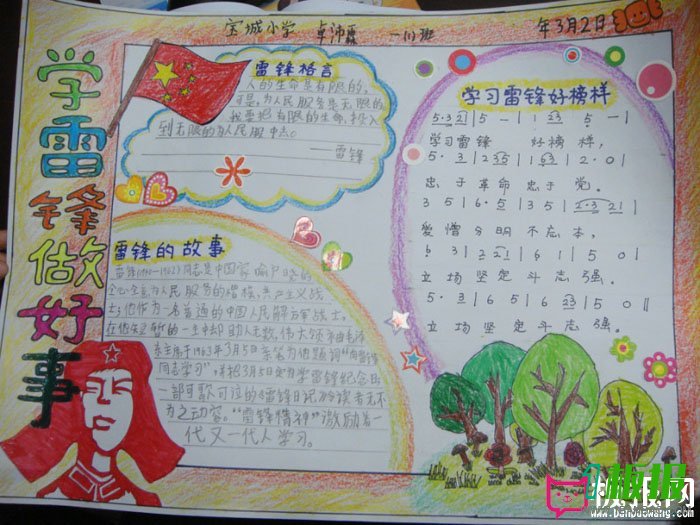 宝城小学 卓沛霖 一(1)班 年3月2日
学雷锋做好事
雷锋格言
人的生命是有限的,
可是,为人民服务是无限的
我要把有限的生命,投入
到无限的为人民服中去。
——雷锋
雷锋的故事
雷锋(1940—1962)同志是中国家喻户晓的
全心全意为人民服务的楷模、共产主义战
士;他作为一名普通的中国人民解放军战士,
在他短暂的一生中却助人无数,伟大领袖毛泽
东主席于1963年3月5日亲笔为他题词“向雷锋
同志学习”,并把3月5日定为学雷锋纪念日
一部可歌可泣的《雷锋日记》令读者无不
为之动容。“雷锋精神”激励着一
代又一代人学习。
学习雷锋好榜样
5·3 21 | 5 — | 1 63 | 5 — |
学习雷锋 好榜样,
5·3 | 2 35 | 1 63 | 2·0 |
忠于革命忠于党。
3 5 | 6·5 | 3 5 | 2·3 21 |
爱憎分明不忘本,
6 3 | 2 12 | 6 1 | 5 0 |
立场坚定斗志强。
5·3 | 6 5 | 6 53 | 5 0 ‖
立场坚定斗志强。
板报网
www.banbaowang.com